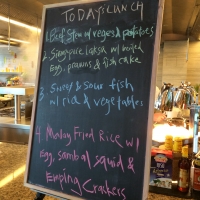 TODAY'S LUNCH
1. Beef Stew w/ veges & potatoes
2. Singapore laksa w/ boiled
Egg, prawns & fish cake
3 Sweet & Sour fish
w/ rice & vegetables
4 Malay Fried Rice w/
Egg, sambal squid &
Emping Crackers